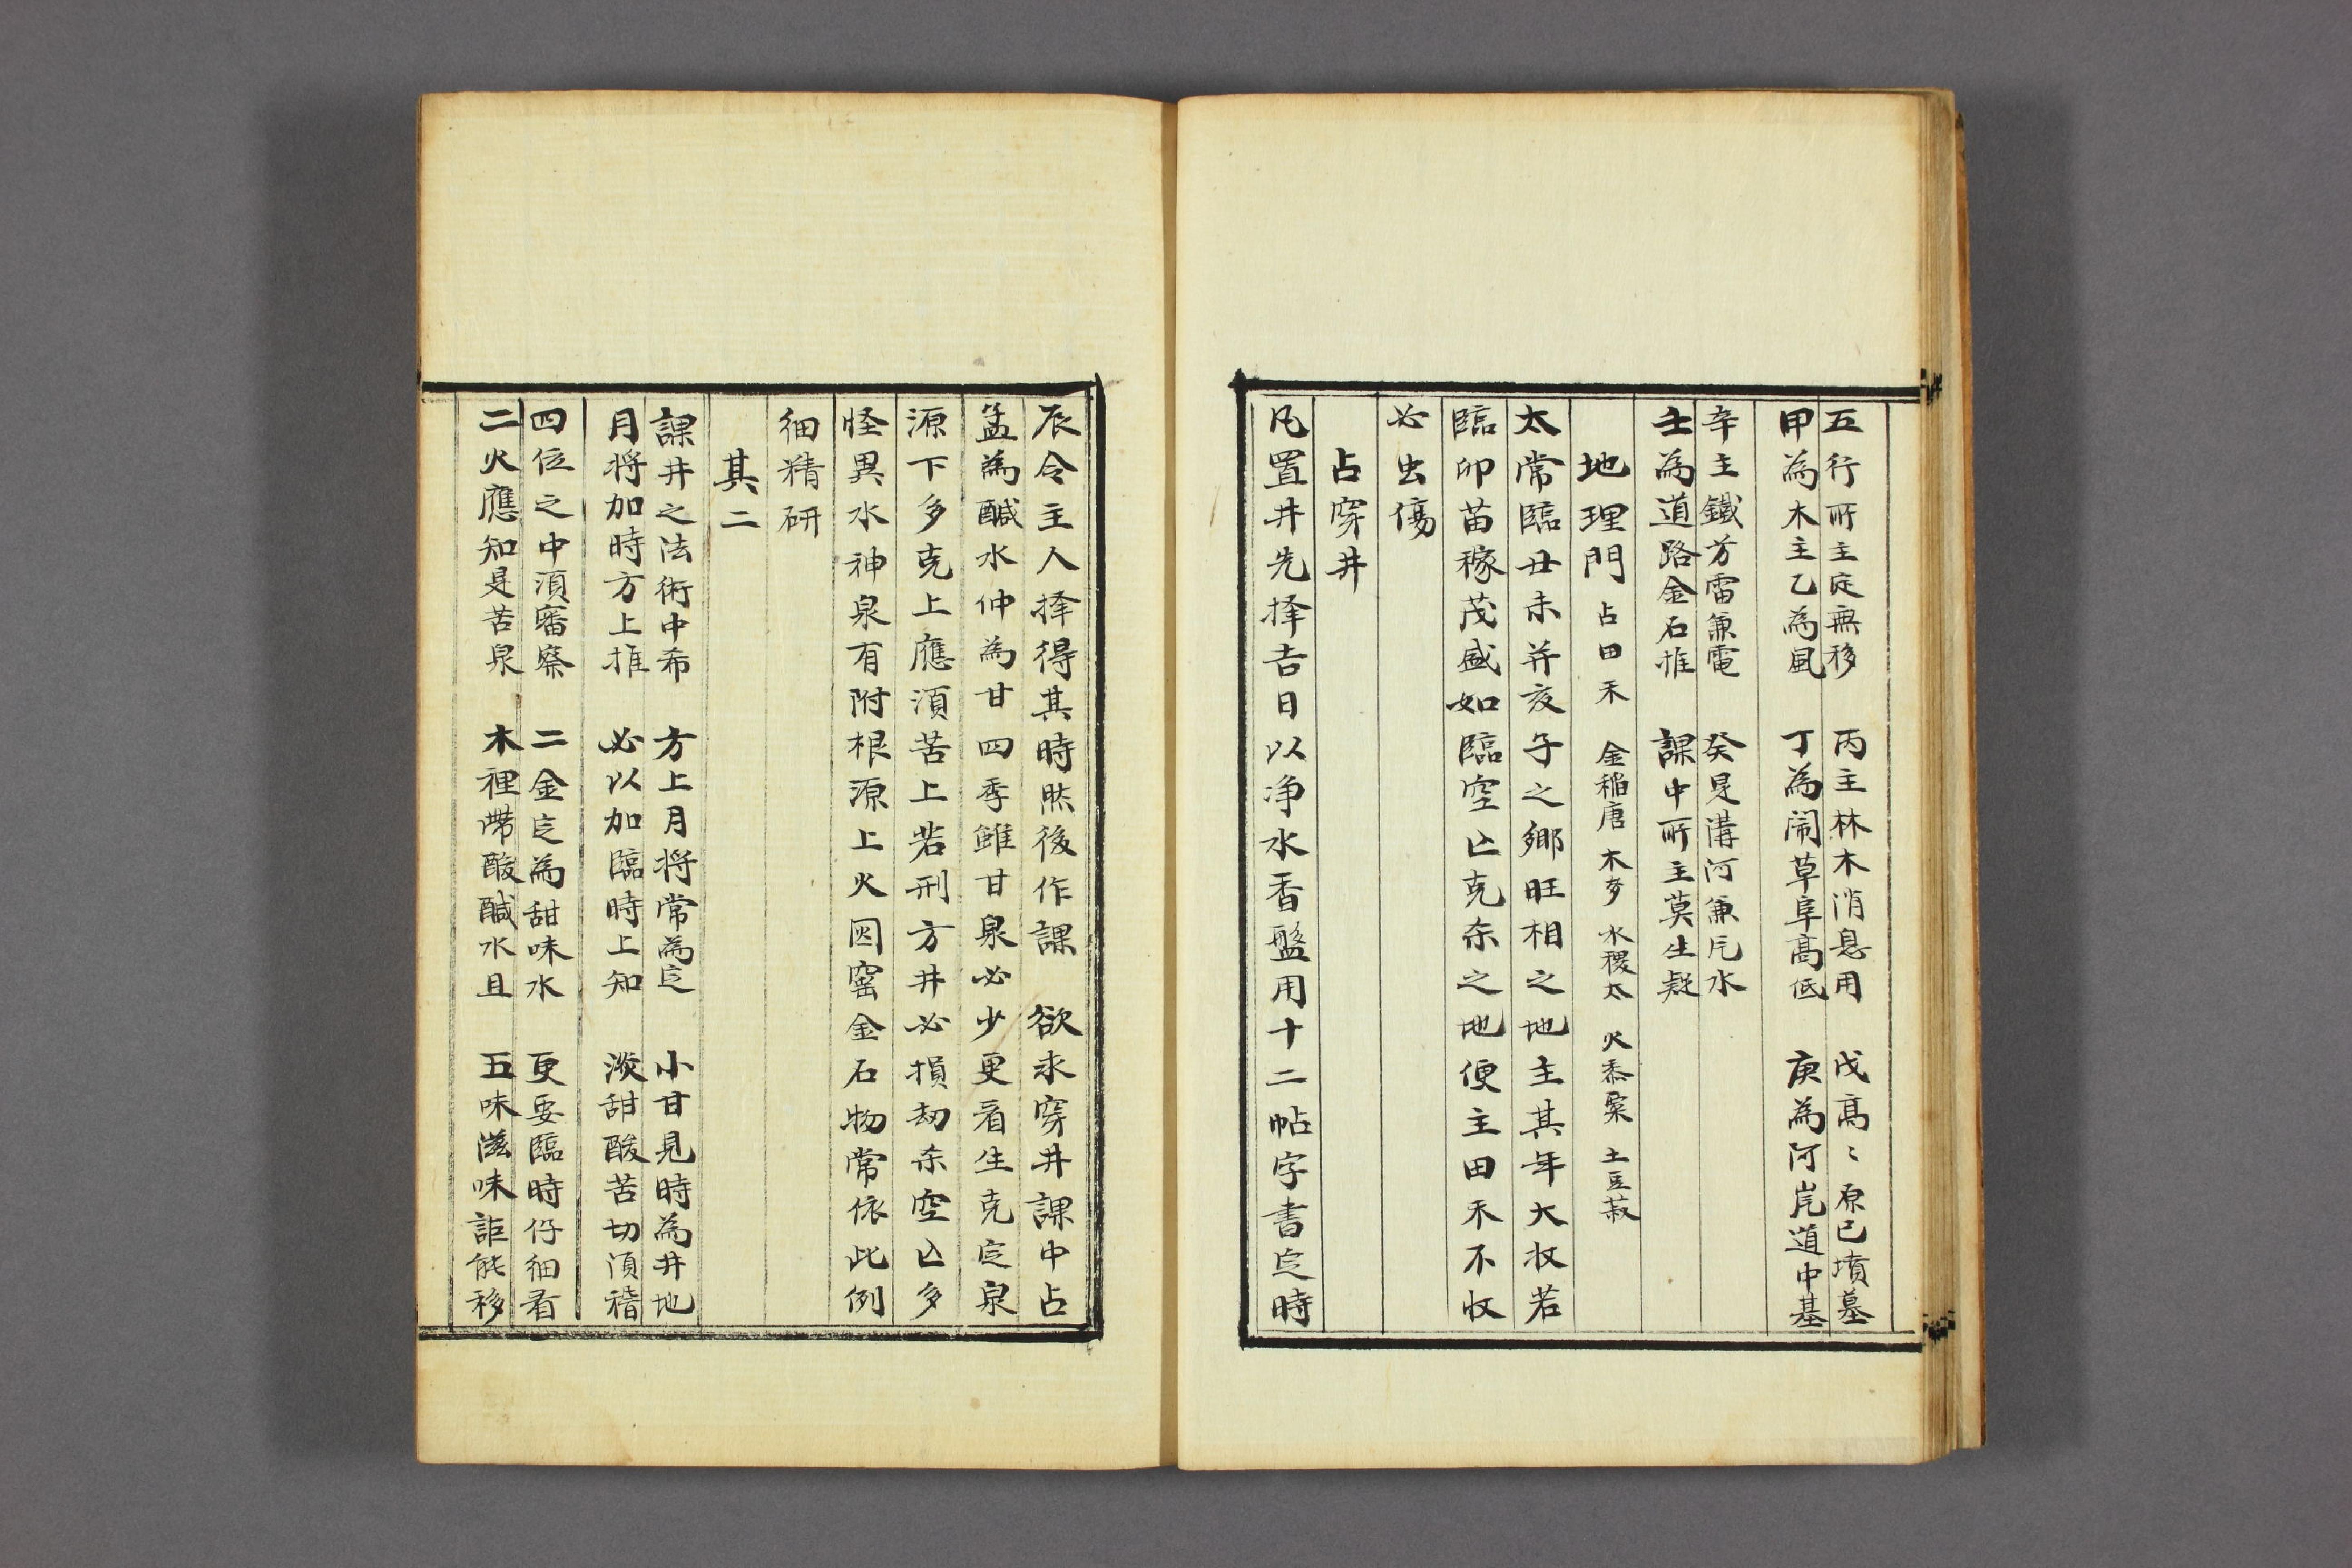 五行所主定無移　丙主林木消息用　戊高〻原己墳墓
甲為木主乙為風　丁為閙草阜高低　庚為河岸道中基
辛主鐵方雷兼電　癸是溝河兼凢水
壬為道路金石推　課中所主莫生疑
地理門　占田禾　金稲唐　木麦　水稷太　火黍粟　土豆菽
太常臨丑未并亥子之鄉旺相之地主其年大收若
臨卯苗稼茂盛如臨空亡克杀之地便主田禾不收
必虫傷
占穿井
凡置井先择吉日以净水香盤用十二帖字書定時
辰令主人择得其時然後作課　欲求穿井課中占
孟為鹹水仲為甘四季雖甘泉必少更看生克定泉
源下多克上應須苦上若刑方井必損劫杀空亡多
怪異水神泉有附根源上火因窑金石物常依此例
细精研
其二
課井之法術中希　方上月将常為定　小甘見時為井地
月将加時方上推　必以加臨時上知　淡甜酸苦切須稽
四位之中須審察　二金定為甜味水　更要臨時仔细看
二火應知是苦泉　木裡帶酸鹹水且　五味滋味詎能移